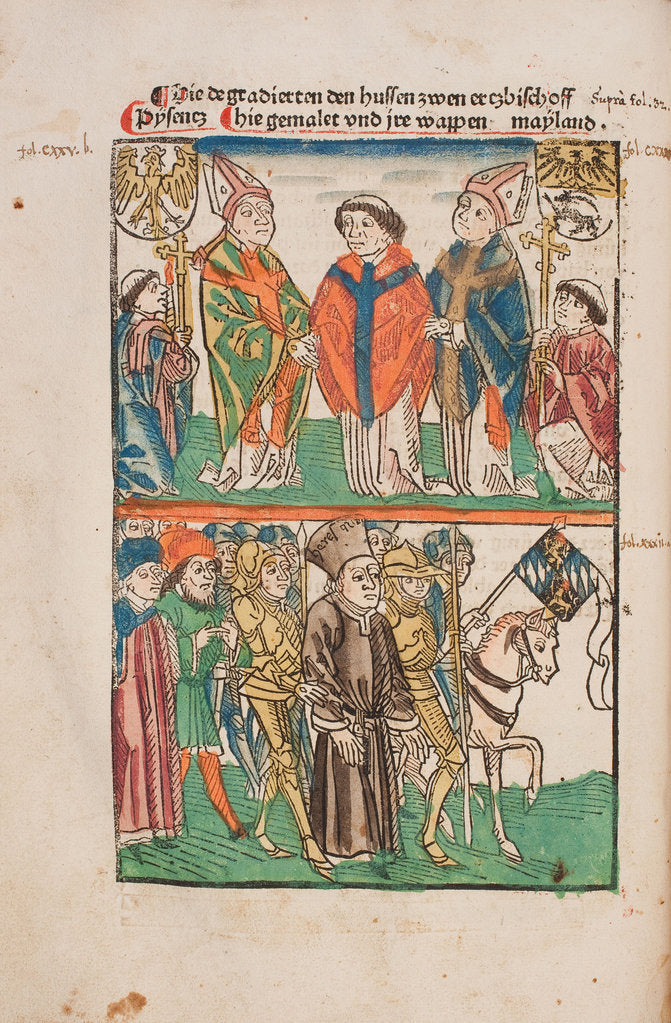 Die degradierten den hussen zwen ertzbischoff
Supra fol. 32.
Pysentz hie gemalet vnd jre wappen mayland.
fol. CXXV. b.
fol.
heresi
fol. XXXII.